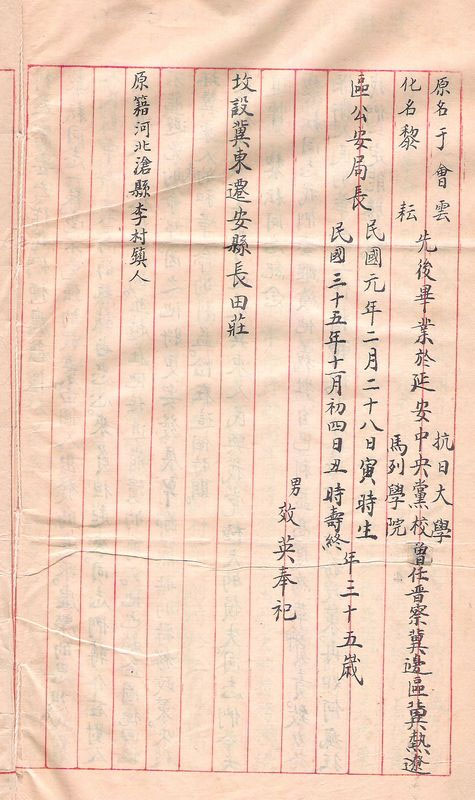 原名于會雲
化名黎耘
先後畢業於延安中央黨校
抗日大學
馬列學院
曾任晋察冀邊區冀熱遼
區公安局長
民國元年二月二十八日寅時生
民國三十五年十一月初四日丑時壽終
年三十五歲
男效英奉祀
坟設冀東遷安縣長田莊
原籍河北滄縣李村鎮人